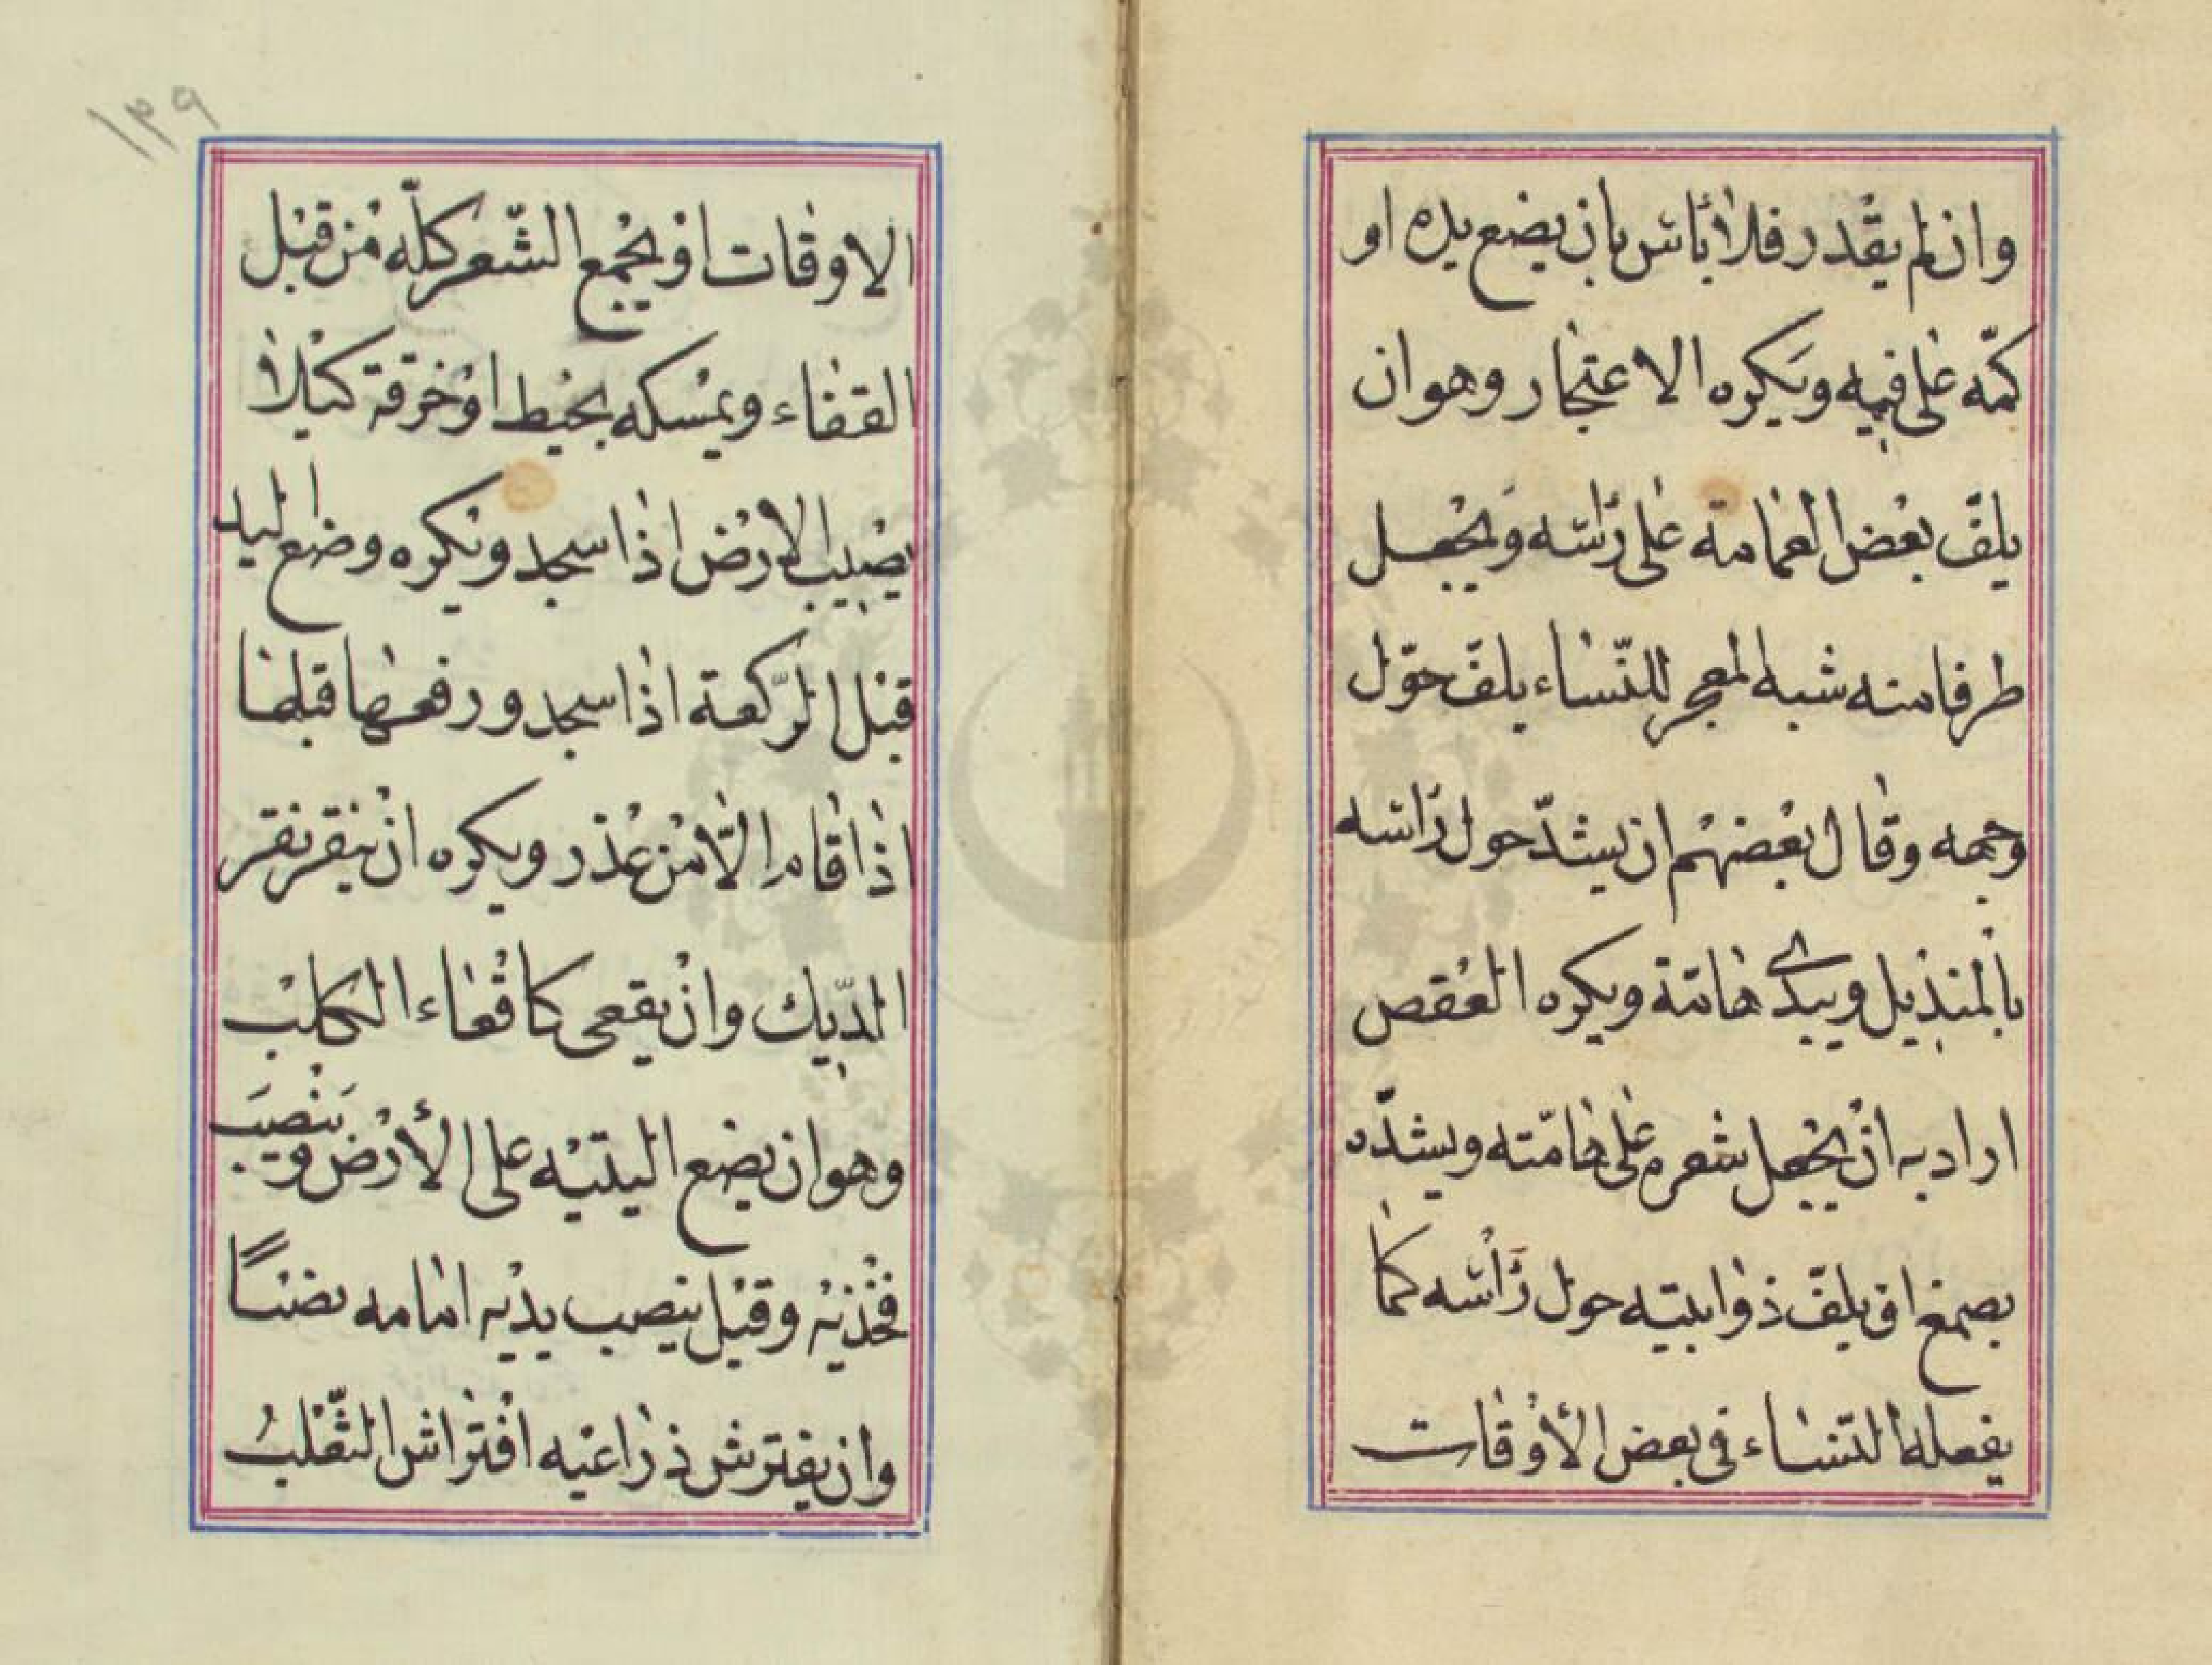 وان لم يقدر فلا بأس بان يضع يده او
كمّه على فيه ويكره الاعتجار وهو ان
يلفّ بعض العمامة على رأسه ويجعل
طرفا منه شبه المعجر للنّساء يلفّ حول
وجهه وقال بعضهم ان يشدّ حول رأسه
بالمنديل ويبدى هامته ويكره العقص
اراد به ان يجعل شعره على هامّته ويشدّه
بصمغ او يلفّ ذوابيته حول رأسه كما
يفعله النّساء فى بعض الأوقات
١٣٩
الاوقات او يجمع الشّعر كلّه من قبل
القفاء ويمسكه بخيط او خرقة كيلا
يصيب الارض اذا سجد ويكره وضع اليد
قبل الرّكعة اذا سجد ورفعها قبلها
اذا قام الاّ من عذر ويكره ان ينقر نقر
الدّيك وان يقعى كاقعاء الكلب
وهو ان يضع اليتيه على الأرض وينصب
فخذيه وقيل ينصب يديه امامه نصباً
وان يفترش ذراعيه افتراش الثّعلب